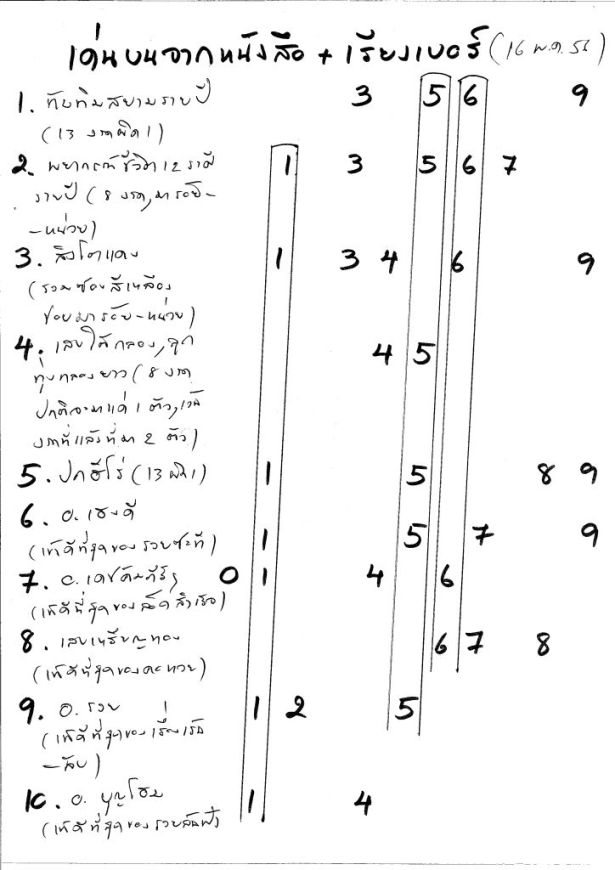 เด่นบนจากหนังสือ + เรียงเบอร์ (16 พ.ค. 56)
1. ทับทิมสยามรายปี 3 5 6 9
(13 งวดผิด 1)
2. พยากรณ์ชีวิต 12 ราศี 1 3 5 6 7
รายปี (8 งวด, มาร้อย-
-หน่วย)
3. สิงโตแดง 1 3 4 6 9
(รวมซอง
ชอบมาร้อย-หน่วย)
4. เลขใต้กลอง, ลูก 4 5
ทุ่งกลองยาว (8 งวด
ปกติจะมาแค่ 1 ตัว,
งวดที่แล้วที่มา 2 ตัว)
5. ปกฮีโร่ (13 ผิด 1) 1 5 8 9
6. อ. เฮงดี 1 5 7 9
(เด็ดที่สุดของ รวย)
7. อ. 0 1 4 6
(เด็ดที่สุดของ)
8. เลขเหรียญทอง 6 7 8
(เด็ดที่สุดของ)
9. อ. รวย 1 2 5
(เด็ดที่สุดของ
-ลับ)
10. อ. บุญโฮม 1 4
(เด็ดที่สุดของ)